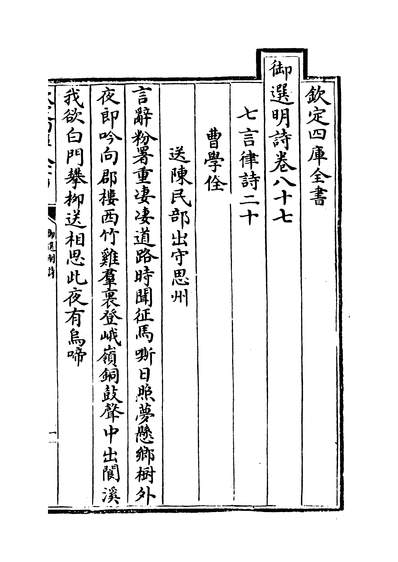 欽定四庫全書
御選明詩卷八十七
七言律詩二十
曹學佺
送陳民部出守思州
言辭粉署重淒淒道路時聞征馬嘶日照夢懸鄉樹外
夜郎吟向郡樓西竹雞羣裏登峨嶺銅鼓聲中出閬溪
我欲白門攀柳送相思此夜有烏啼